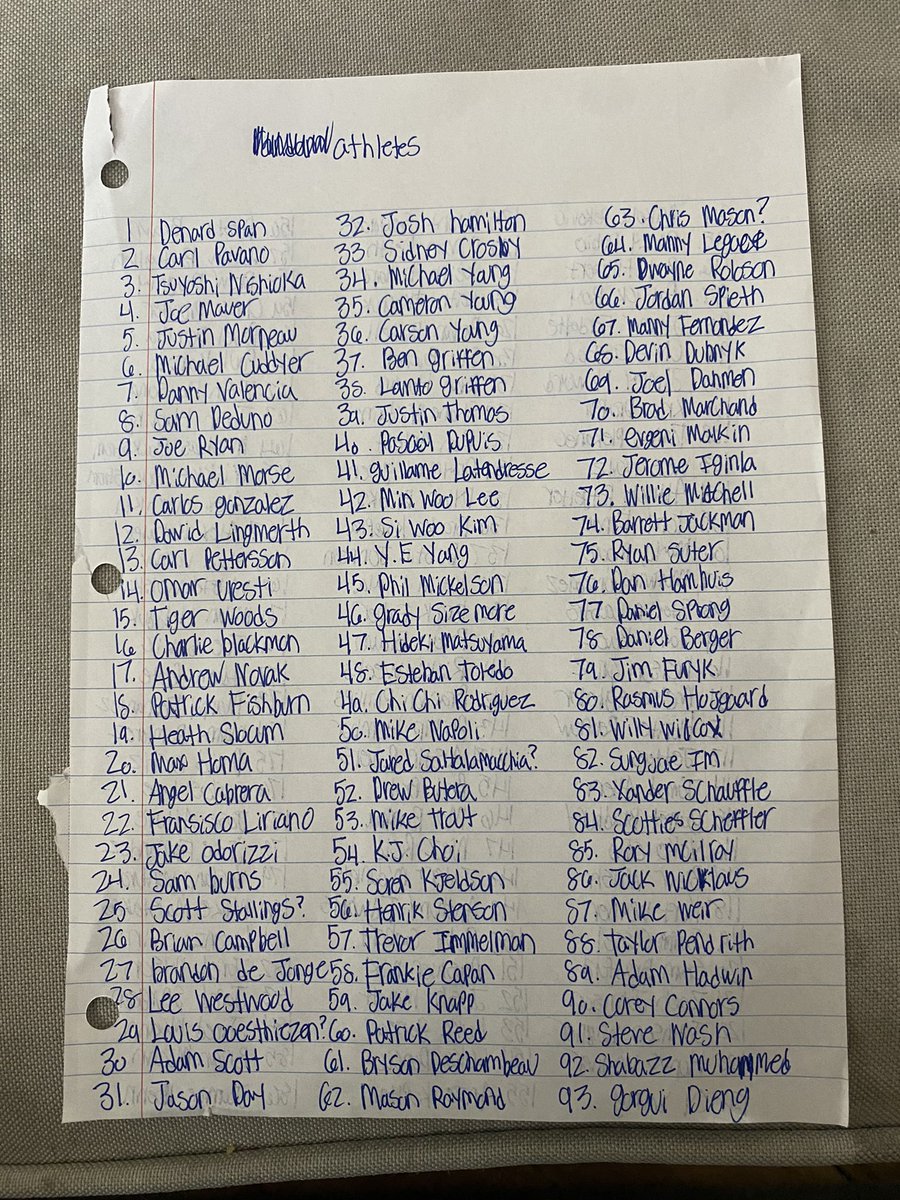 athletes
1 Denard Span
2 Carl Pavano
3. Tsuyoshi Nishioka
4. Joe Mauer
5. Justin Morneau
6. Michael Cuddyer
7. Danny Valencia
8. Sam Deduno
9. Joe Ryan
10. Michael Morse
11. Carlos gonzalez
12. David Lingmerth
13. Carl Pettersson
14. Omar Uresti
15. Tiger Woods
16 Charlie blackmon
17. Andrew Novak
18. Patrick Fishburn
19. Heath Slocum
20. Max Homa
21. Angel Cabrera
22. Fransisco Liriano
23. Jake odorizzi
24. Sam burns
25 Scott Stallings?
26 Brian Campbell
27 brandon de Jonge
28 Lee Westwood
29 Louis oosthiezen?
30 Adam Scott
31. Jason Day
32. Josh hamilton
33. Sidney Crosby
34. Michael Yang
35. Cameron Young
36. Carson Young
37. Ben griffen
38. Lanto griffen
39. Justin Thomas
40. Pascal Dupuis
41. guillame Latendresse
42. Min Woo Lee
43. Si Woo Kim
44. Y.E Yang
45. Phil Mickelson
46. grady Sizemore
47. Hideki Matsuyama
48. Esteban Toledo
49. Chi Chi Rodriguez
50. Mike Napoli
51. Jared Saltalamacchia?
52. Drew Butera
53. Mike Trout
54. K.J. Choi
55. Soren Kjeldson
56. Henrik Stenson
57. Trevor Immelman
58. Frankie Capan
59. Jake Knapp
60. Patrick Reed
61. Bryson Deschambeau
62. Mason Raymond
63. Chris Mason?
64. Manny Legace
65. Dwayne Roloson
66. Jordan Spieth
67. Manny Fernandez
68. Devin Dubnyk
69. Joel Dahmen
70. Brad Marchand
71. evgeni Malkin
72. Jerome Iginla
73. Willie Mitchell
74. Barrett Jackman
75. Ryan Suter
76. Dan Hamhuis
77. Daniel Sprong
78. Daniel Berger
79. Jim Furyk
80. Rasmus Hojgaard
81. Willy Wilcox
82. Sungjae Im
83. Xander Schauffle
84. Scotties Scheffler
85. Rory mcilroy
86. Jack Nicklaus
87. Mike Weir
88. Taylor Pendrith
89. Adam Hadwin
90. Corey Connors
91. Steve Nash
92. Shabazz muhammed
93. gorgui Dieng